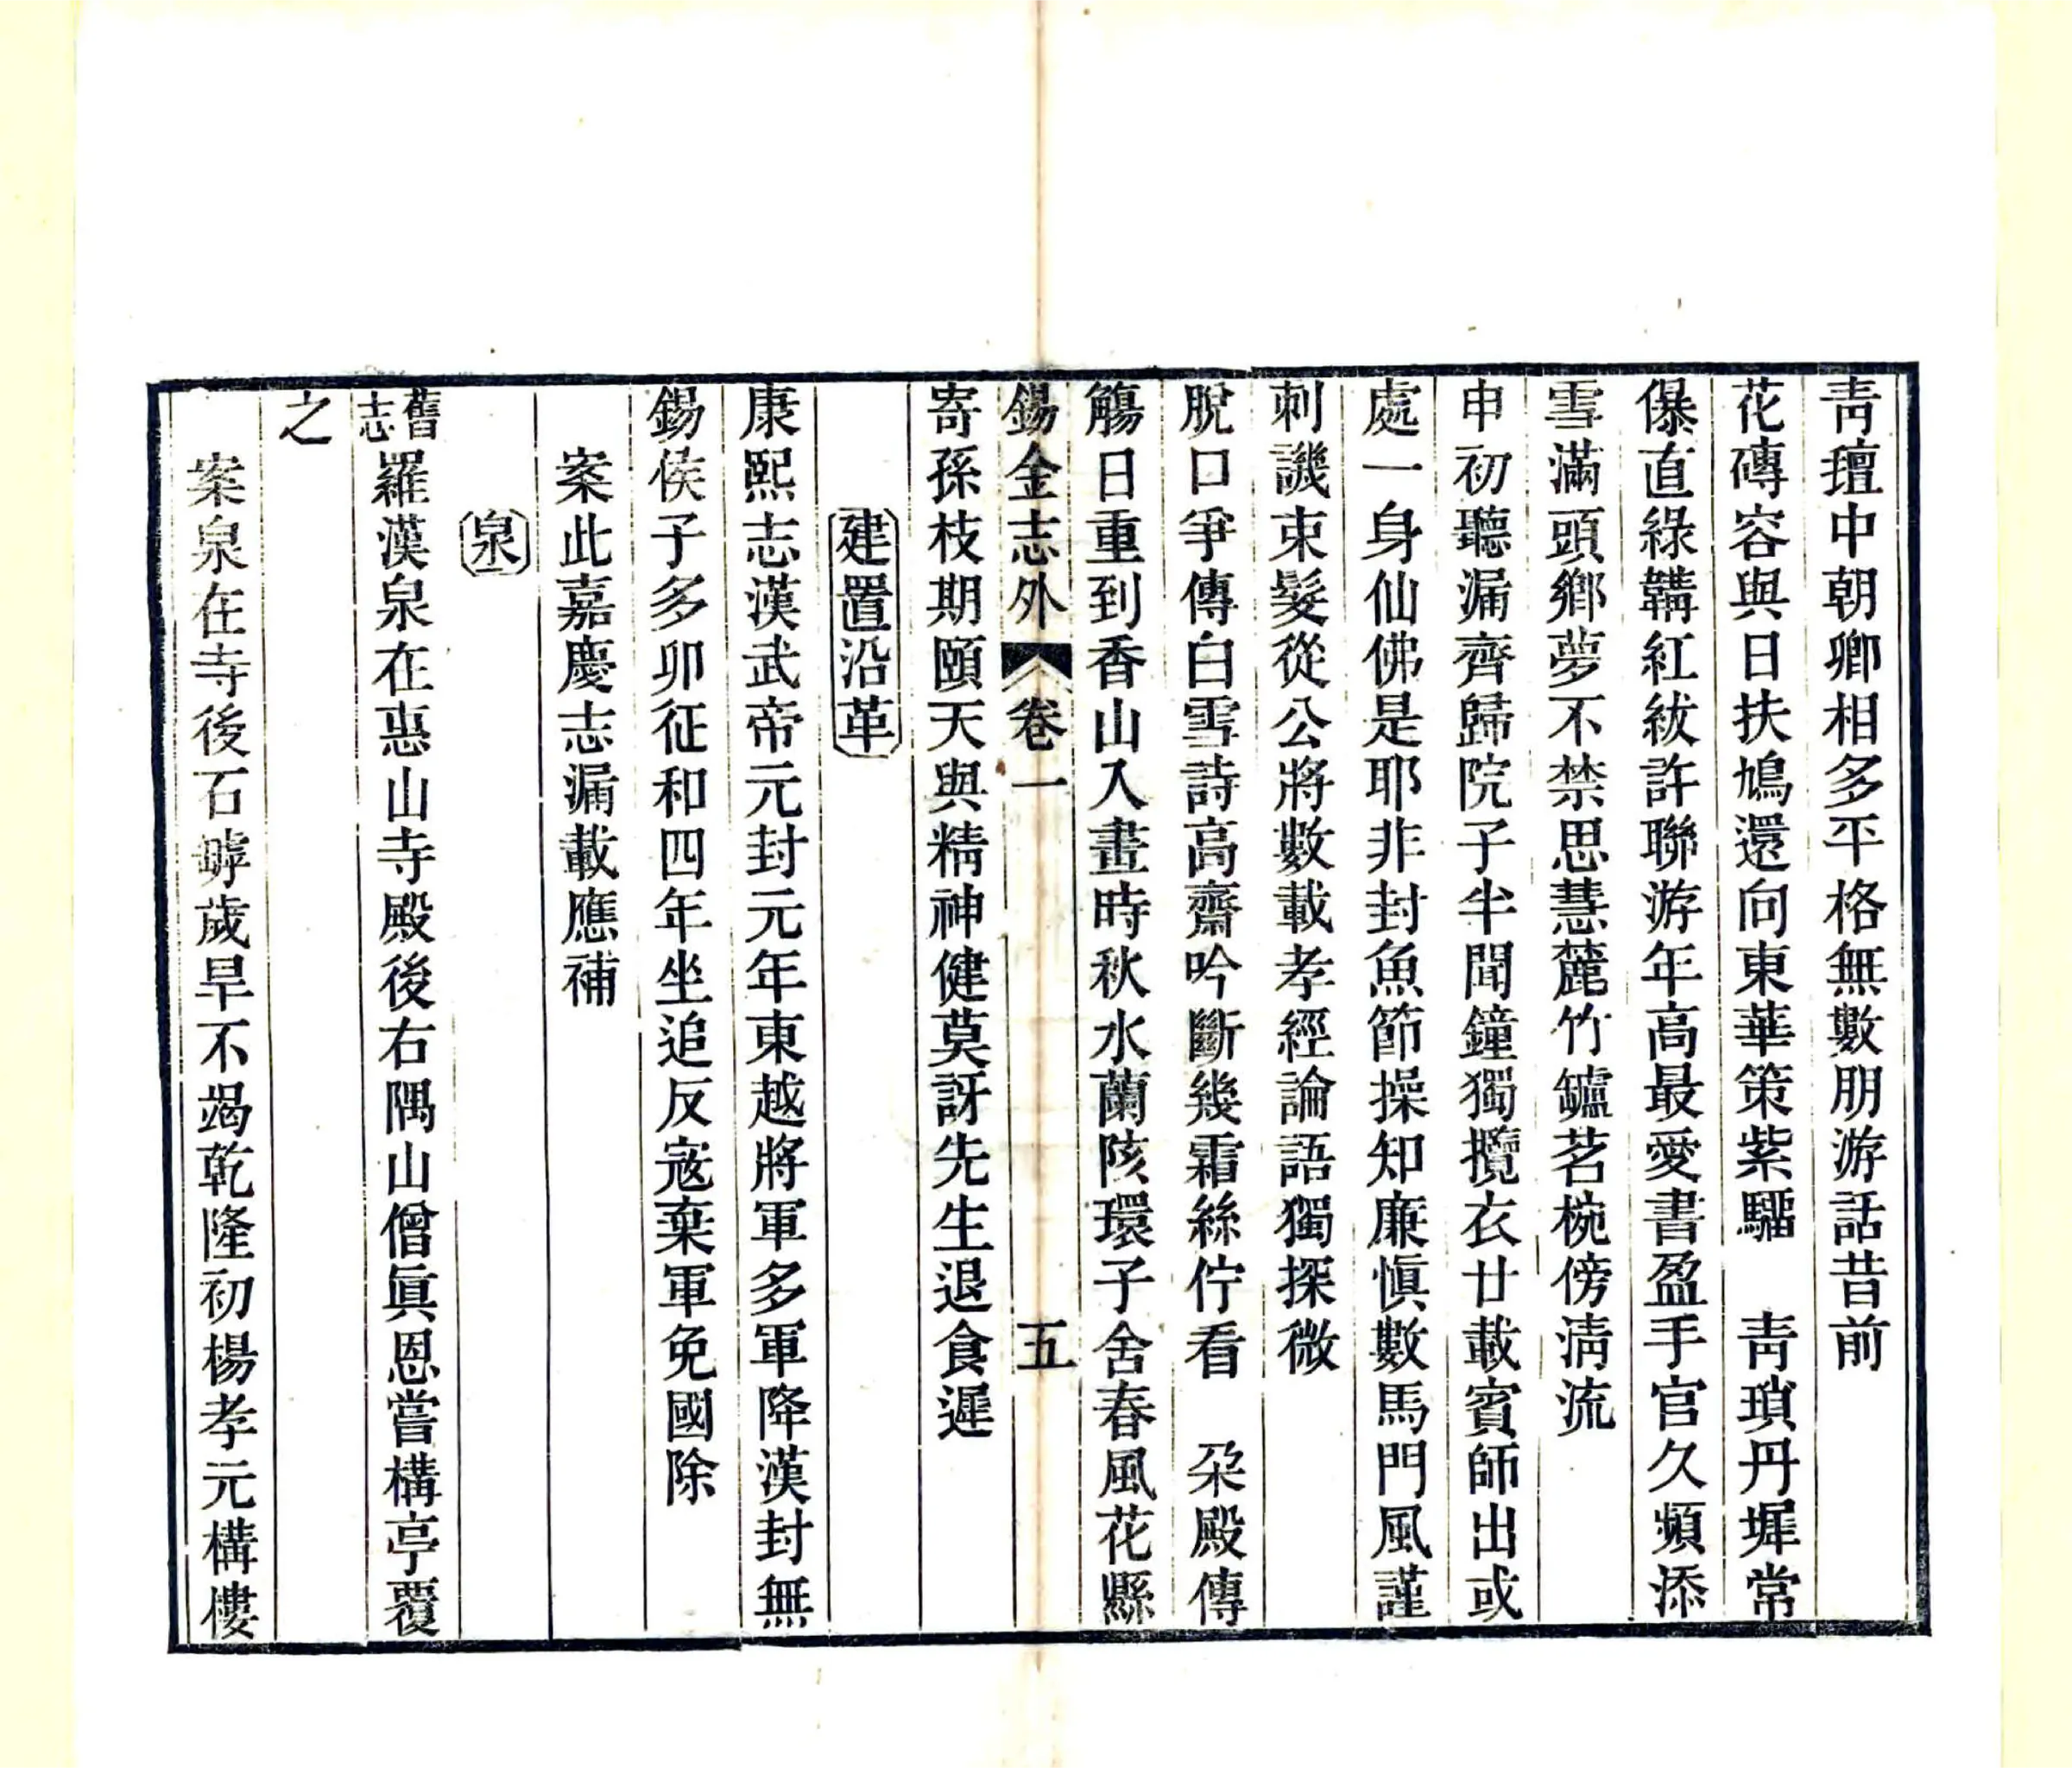 靑瑄中朝卿相多平格無數朋游話昔前
花磚容與日扶鳩還向東華策紫騮　靑瑣丹墀常
儤直綠韝紅紱許聯游年高最愛書盈手官久頻添
雪滿頭鄉夢不禁思慧麓竹罏茗椀傍淸流
申初聽漏齊歸院子半聞鐘獨攬衣廿載賓師出或
處一身仙佛是耶非封魚節操知廉愼數馬門風謹
刺譏束髮從公將數載孝經論語獨探微
脫口爭傳白雪詩高齋吟斷幾霜絲佇看　朶殿傳
觴日重到香山入畫時秋水蘭陔環子舍春風花縣
錫金志外　卷一　五
寄孫枝期頤天與精神健莫訝先生退食遲
建置沿革
康熙志漢武帝元封元年東越將軍多軍降漢封無
錫侯子多卯征和四年坐追反寇棄軍免國除
案此嘉慶志漏載應補
泉
舊志羅漢泉在惠山寺殿後右隅山僧眞恩嘗構亭覆
之
案泉在寺後石罅歲旱不竭乾隆初楊孝元構僂